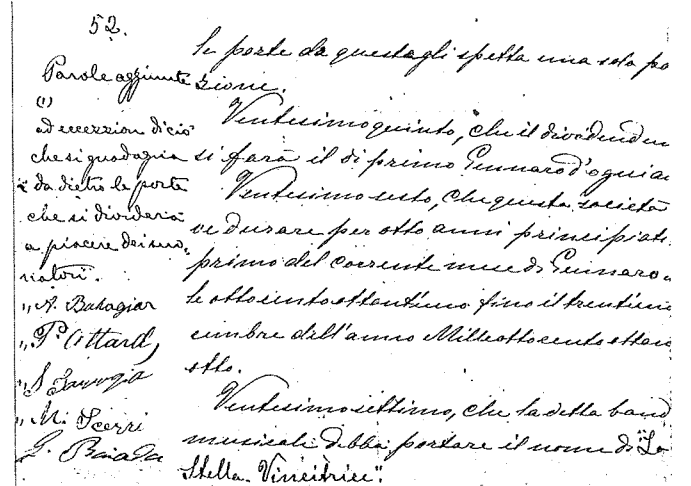 52.
Parole aggiunte
(1)
ad eccezion di ciò
che si guadagna
da dietro le porte
che si dividerà
a piacere dei suo-
natori".
"A. Bahagiar
"P. Attard,
"S.
"M. Scerri
G. Baiada
le porte da questa gli spetta una sola po
zione.
Ventesimo quinto, che il dividenden
si farà il di primo Gennaro d'ogni a
Ventesimo sesto, che questa società
ve durare per otto anni principiati
primo del corrente mese di Gennaro
le ottocento ottantuno fino il trentuno
cembre dell'anno Milleottocento ottan
otto.
Ventesimo settimo, che la detta band
musicale debba portare il nome di "La
Stella Vincitrice".